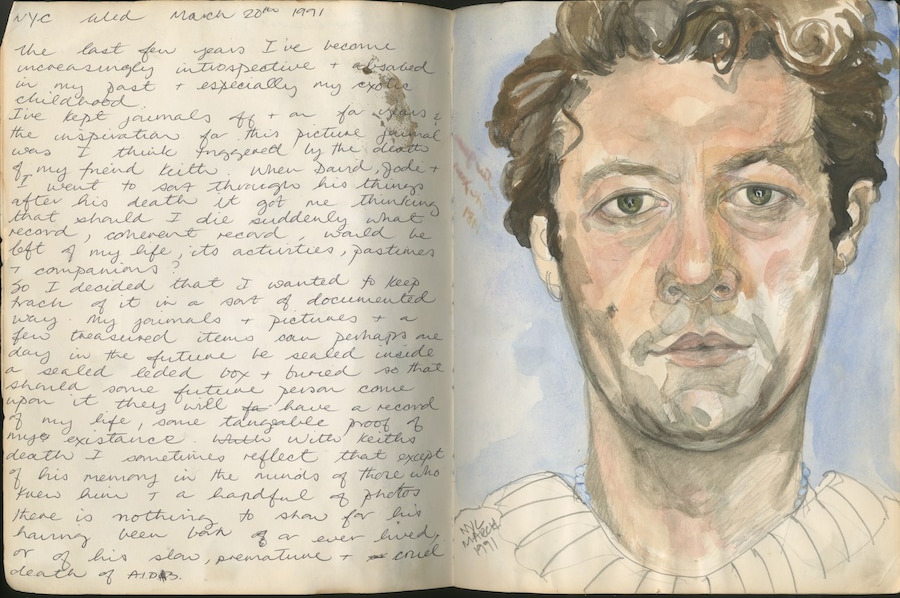 NYC Wed March 20th 1991
The last few years I've become
increasingly introspective + absorbed
in my past + especially my exotic
childhood.
I've kept journals off + on for years &
the inspiration for this picture journal
was I think triggered by the death
of my friend Keith. When David, Jode +
I went to sort through his things
after his death it got me thinking
that should I die suddenly what
record, coherent record, would be
left of my life, its activities, pastimes
+ companions?
So I decided that I wanted to keep
track of it in a sort of documented
way. My journals + pictures + a
few treasured items can perhaps one
day in the future be sealed inside
a sealed leded box + buried so that
should some future person come
upon it they will have a record
of my life, some tangeable proof of
my existance. With Keiths
death I sometimes reflect that except
of his memory in the minds of those who
knew him + a handful of photos
there is nothing to show for his
having been born or ever lived,
or of his slow, premature + cruel
death of AIDS.
NYC
MARCH
1991